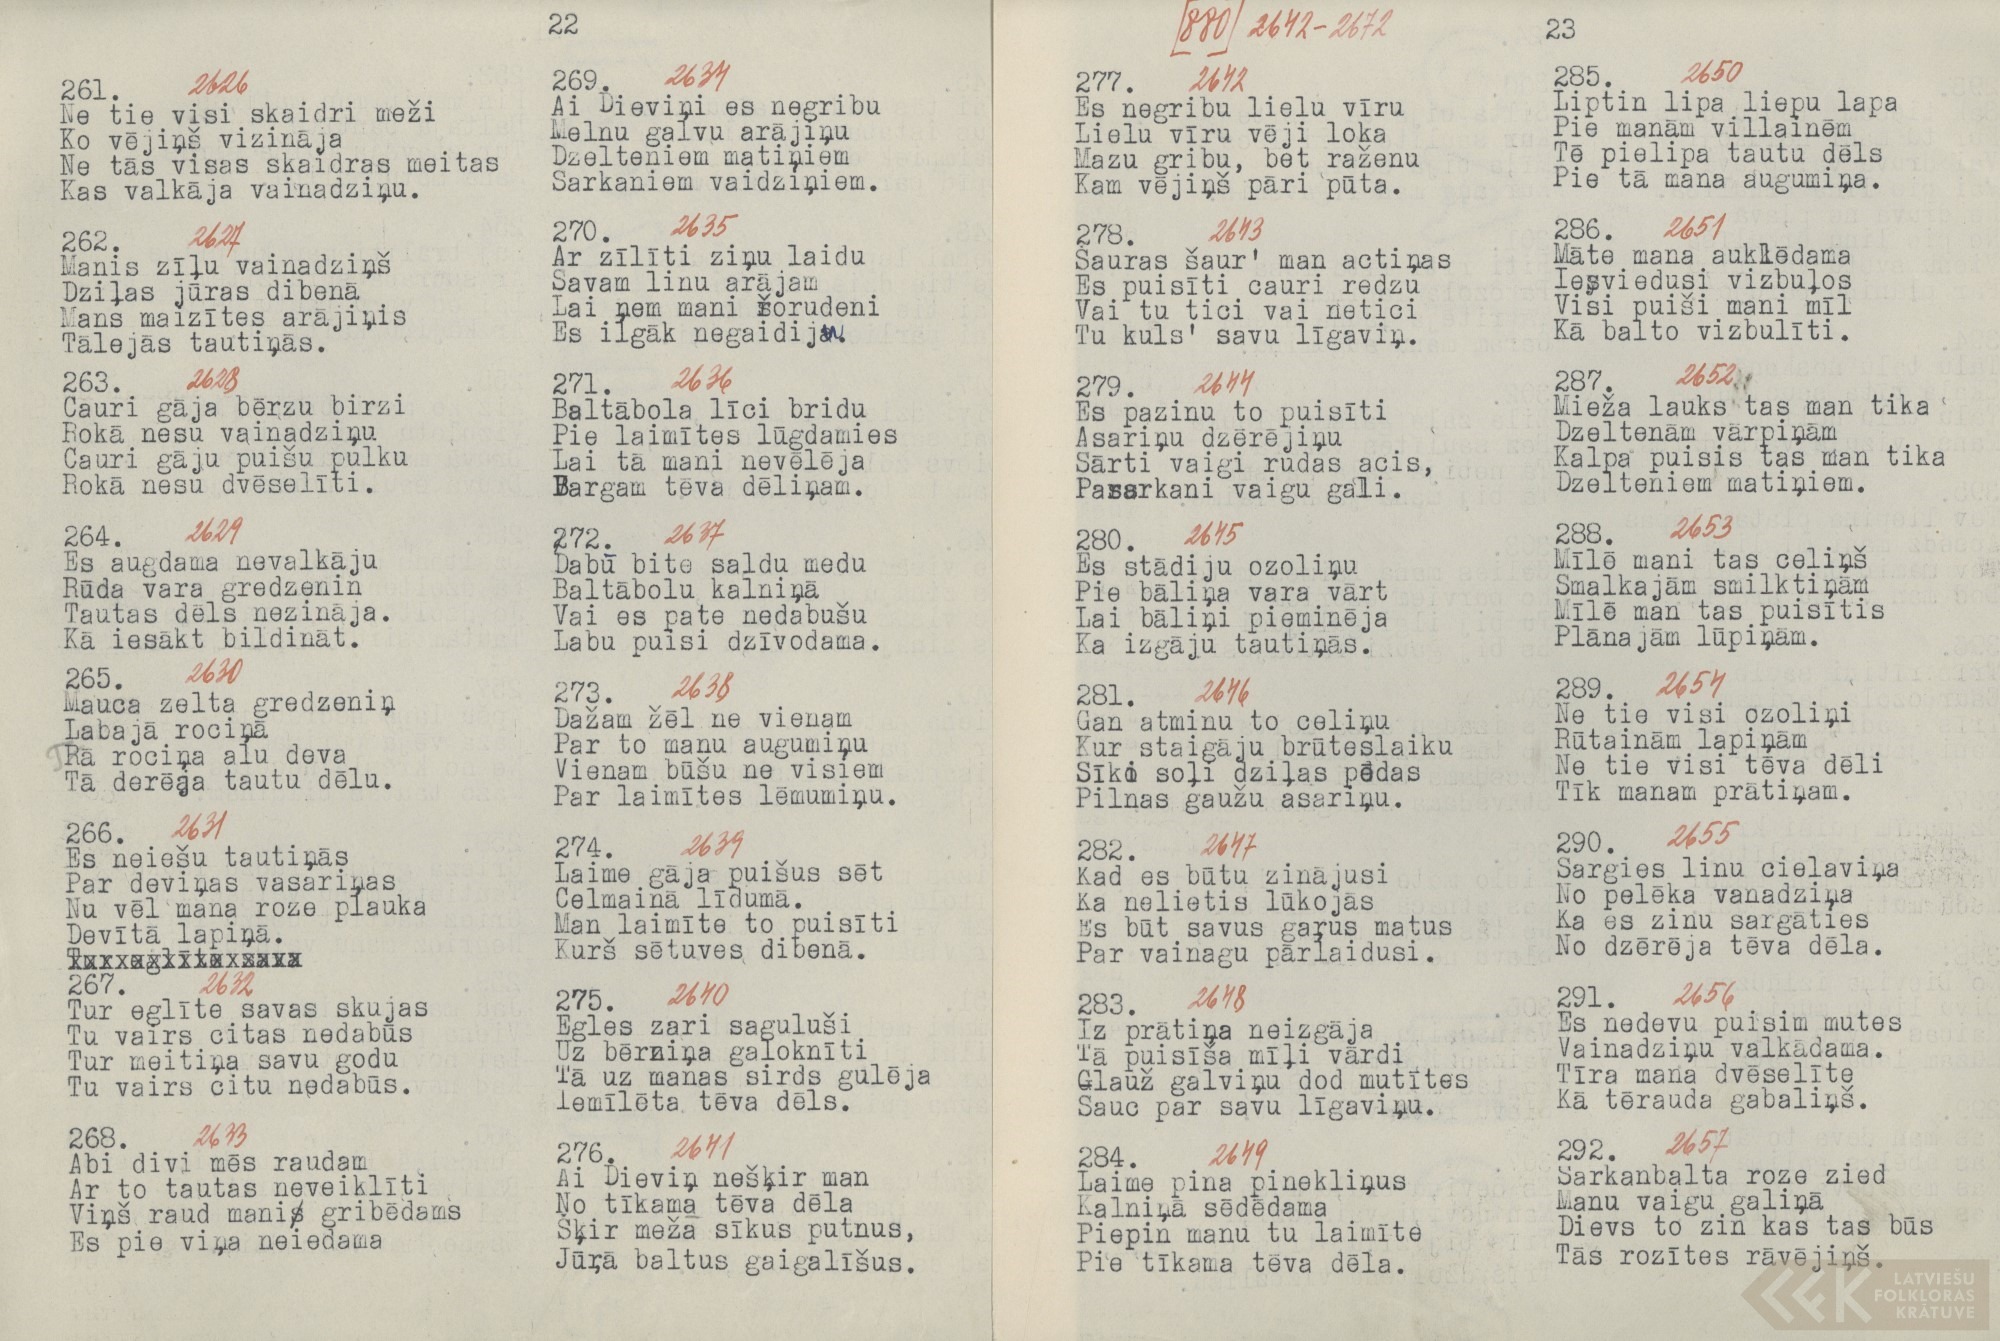 22
261. 2626
Ne tie visi skaidri meži
Ko vējiņš vizināja
Ne tās visas skaidras meitas
Kas valkāja vainadziņu.
262. 2627
Manis zīļu vainadziņš
Dziļas jūras dibenā
Mans maizītes arājiņis
Tālejās tautiņās.
263. 2628
Cauri gāja bērzu birzi
Rokā nesu vainadziņu
Cauri gāju puišu pulku
Rokā nesu dvēselīti.
264. 2629
Es augdama nevalkāju
Rūda vara gredzenin
Tautas dēls nezināja.
Kā iesākt bildināt.
265. 2630
Mauca zelta gredzeniņ
Labajā rociņā
Rā rociņa alu deva
Tā derēja tautu dēlu.
266. 2631
Es neiešu tautiņās
Par deviņas vasariņas
Nu vēl mana roze plauka
Devītā lapiņā.
Tur eglīte sava
267. 2632
Tur eglīte savas skujas
Tu vairs citas nedabūs
Tur meitiņa savu godu
Tu vairs citu nedabūs.
268. 2633
Abi divi mēs raudam
Ar to tautas neveiklīti
Viņš raud manis gribēdams
Es pie viņa neiedama
269. 2634
Ai Dieviņi es negribu
Melnu galvu arājiņu
Dzelteniem matiņiem
Sarkaniem vaidziņiem.
270. 2635
Ar zīlīti ziņu laidu
Savam linu arājam
Lai ņem mani šorudeni
Es ilgāk negaidiju.
271. 2636
Baltābola līci bridu
Pie laimītes lūgdamies
Lai tā mani nevēlēja
Bargam tēva dēliņam.
272. 2637
Dabū bite saldu medu
Baltābolu kalniņā
Vai es pate nedabušu
Labu puisi dzīvodama.
273. 2638
Dažam žēl ne vienam
Par to manu augumiņu
Vienam būšu ne visiem
Par laimītes lēmumiņu.
274. 2639
Laime gāja puišus sēt
Celmainā līdumā.
Man laimīte to puisīti
Kurš sētuves dibenā.
275. 2640
Egles zari saguluši
Uz bērziņa galoknīti
Tā uz manas sirds gulēja
Iemīlēta tēva dēls.
276. 2641
Ai Dieviņ nešķir man
No tīkama tēva dēla
Šķir mežā sīkus putnus,
Jūŗā baltus gaigalīšus.
[880] 2642-2672
23
277. 2642
Es negribu lielu vīru
Lielu vīru vēji loka
Mazu gribu, bet raženu
Kam vējiņš pāri pūta.
278. 2643
Šauras šaur' man actiņas
Es puisīti cauri redzu
Vai tu tici vai netici
Tu kuls' savu līgaviņ.
279. 2644
Es pazinu to puisīti
Asariņu dzērējiņu
Sārti vaigi rūdas acis,
Pasarkani vaigu gali.
280. 2645
Es stādiju ozoliņu
Pie bāliņa vara vārt
Lai bāliņi pieminēja
Ka izgāju tautiņās.
281. 2646
Gan atminu to celiņu
Kur staigāju brūteslaiku
Sīki soļi dziļas pēdas
Pilnas gaužu asariņu.
282. 2647
Kad es būtu zinājusi
Ka nelietis lūkojās
Es būt savus gaŗus matus
Par vainagu pārlaidusi.
283. 2648
Iz prātiņa neizgāja
Tā puisīša mīļi vārdi
Glauž galviņu dod mutītes
Sauc par savu līgaviņu.
284. 2649
Laime pina pinekliņus
Kalniņā sēdēdama
Piepin manu tu laimīte
Pie tīkama tēva dēla.
285. 2650
Liptin lipa liepu lapa
Pie manām villainēm
Tē pielipa tautu dēls
Pie tā mana augumiņa.
286. 2651
Māte mana auklēdama
Iesviedusi vizbuļos
Visi puiši mani mīl
Kā balto vizbulīti.
287. 2652
Mieža lauks tas man tika
Dzeltenām vārpiņām
Kalpa puisis tas man tika
Dzelteniem matiņiem.
288. 2653
Mīlē mani tas celiņš
Smalkajām smilktiņām
Mīlē man tas puisītis
Plānajām lūpiņām.
289. 2654
Ne tie visi ozoliņi
Rūtainām lapiņām
Ne tie visi tēva dēli
Tīk manam prātiņam.
290. 2655
Sargies linu cielaviņa
No pelēka vanadziņa
Ka es zinu sargāties
No dzērēja tēva dēla.
291. 2656
Es nedevu puisim mutes
Vainadziņu valkādama.
Tīra mana dvēselīte
Kā tērauda gabaliņš.
292. 2657
Sarkanbalta roze zied
Manu vaigu galiņā
Dievs to zin kas tas būs
Tās rozītes rāvējiņš.
LATVIEŠU
FOLKLORAS
KRĀTUVE